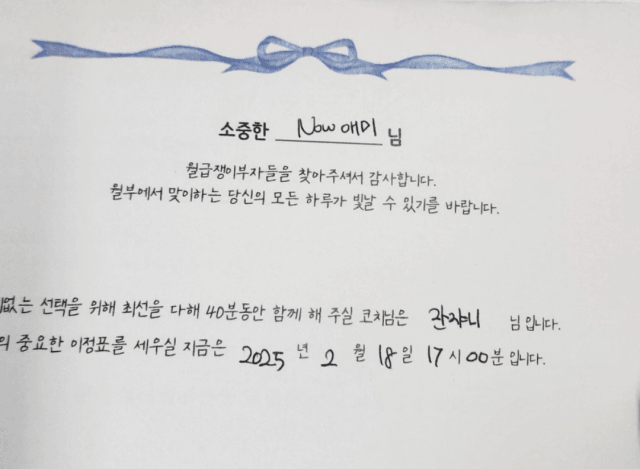 소중한 Now애미 님
월급쟁이부자들을 찾아주셔서 감사합니다.
월부에서 맞이하는 당신의 모든 하루가 빛날 수 있기를 바랍니다.
없는 선택을 위해 최선을 다해 40분동안 함께 해 주실 코치님은 잔쟈니 님입니다.
의 중요한 이정표를 세우실 지금은 2025 년 2 월 18 일 17 시 00 분 입니다.